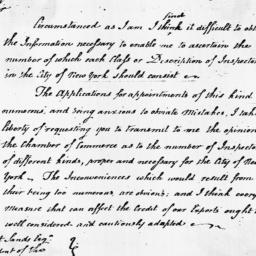 find
Circumstanced as I am I think it difficult to obt
the Information necessary to enable me to ascertain the
number of which each Class or Description of Inspecto
in the City of New York should consist
The Applications for appointments of this kind
numerous, and being anxious to obviate Mistakes, I tak
liberty of requesting you to transmit to me the opinion
the Chamber of Commerce as to the number of Inspecto
of different kinds, proper and necessary for the City of New
York — The Inconveniences which would result from
their being too numerous are obvious; and I think every
measure that can affect the Credit of our Exports ought t
well considered and cautiously adopted
Sands Esqr